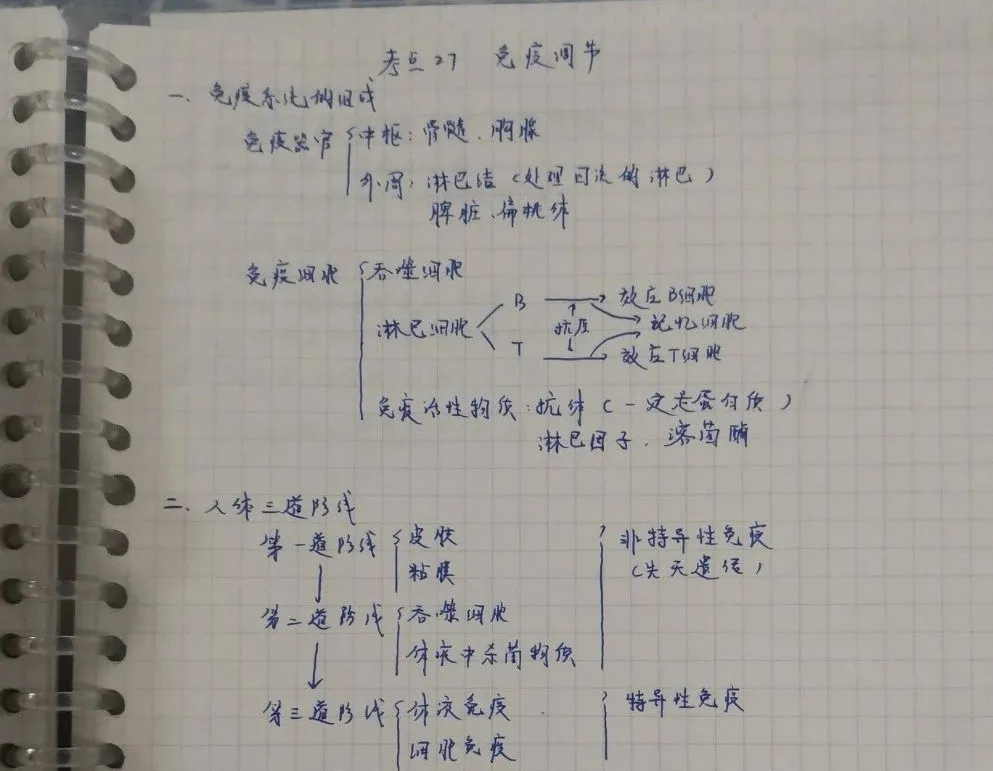 考点27 免疫调节
一、免疫系统的组成
免疫器官 中枢：骨髓、胸腺
外周：淋巴结（处理回流的淋巴）
脾脏、扁桃体
免疫细胞 吞噬细胞
B 效应B细胞
淋巴细胞 抗原 记忆细胞
T 效应T细胞
免疫活性物质：抗体（一定是蛋白质）
淋巴因子、溶菌酶
二、人体三道防线
第一道防线 皮肤 非特异性免疫
粘膜 （先天遗传）
第二道防线 吞噬细胞
体液中杀菌物质
第三道防线 体液免疫 特异性免疫
细胞免疫